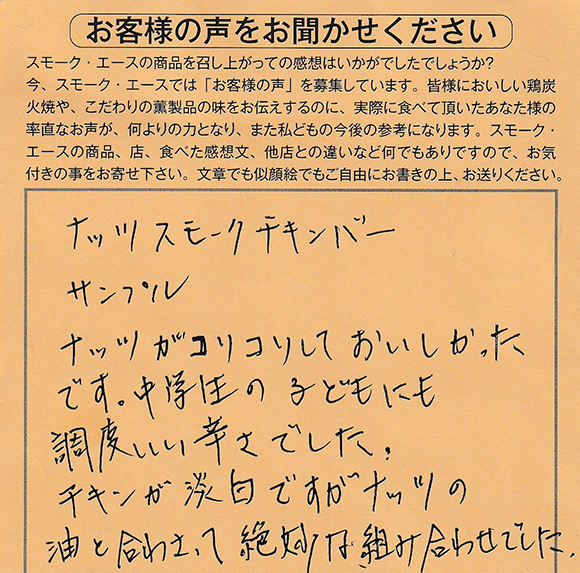 お客様の声をお聞かせください
スモーク・エースの商品を召し上がっての感想はいかがでしたでしょうか?
今、スモーク・エースでは「お客様の声」を募集しています。皆様においしい鶏炭
火焼や、こだわりの薫製品の味をお伝えするのに、実際に食べて頂いたあなた様の
率直なお声が、何よりの力となり、また私どもの今後の参考になります。スモーク・
エースの商品、店、食べた感想文、他店との違いなど何でもありですので、お気
付きの事をお寄せ下さい。文章でも似顔絵でもご自由にお書きの上、お送りください。
ナッツスモークチキンバー
サンプル
ナッツがコリコリしておいしかった
です。中学生の子どもにも
調度いい辛さでした。
チキンが淡白ですがナッツの
油と合わさって絶妙な組み合わせでした。